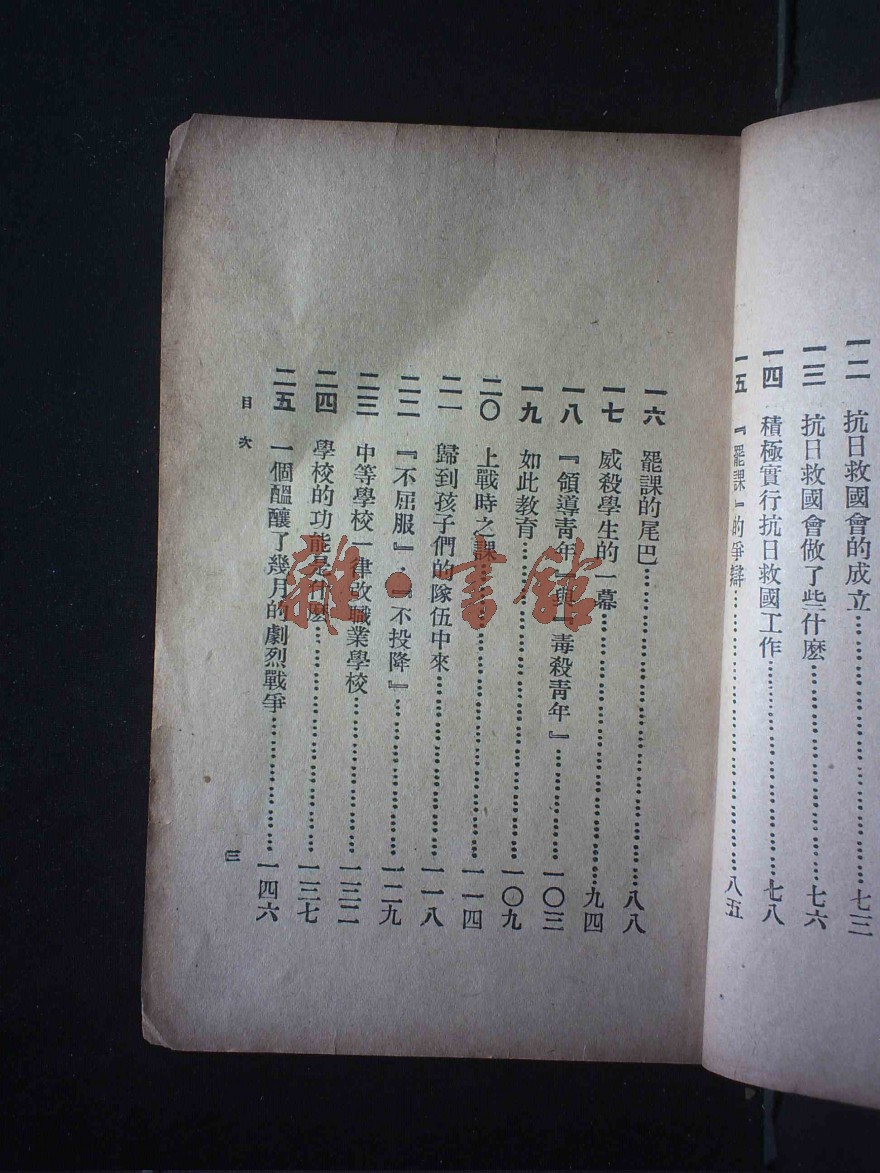 一二　抗日救國會的成立……七三
一三　抗日救國會做了些什麽……七六
一四　積極實行抗日救國工作……七八
一五　『罷課』的爭辯……八五
一六　罷課的尾巴……八八
一七　威殺學生的一幕……九四
一八　『領導青年』與『毒殺青年』……一〇三
一九　如此教育……一〇九
二〇　上戰時之課……一一四
二一　歸到孩子們的隊伍中來……一一八
二二　『不屈服』．『不投降』……一二九
二三　中等學校一律改職業學校……一三二
二四　學校的功能是什麽……一三七
二五　一個醞釀了幾月的劇烈戰爭……一四六
目次
三
雜·書館